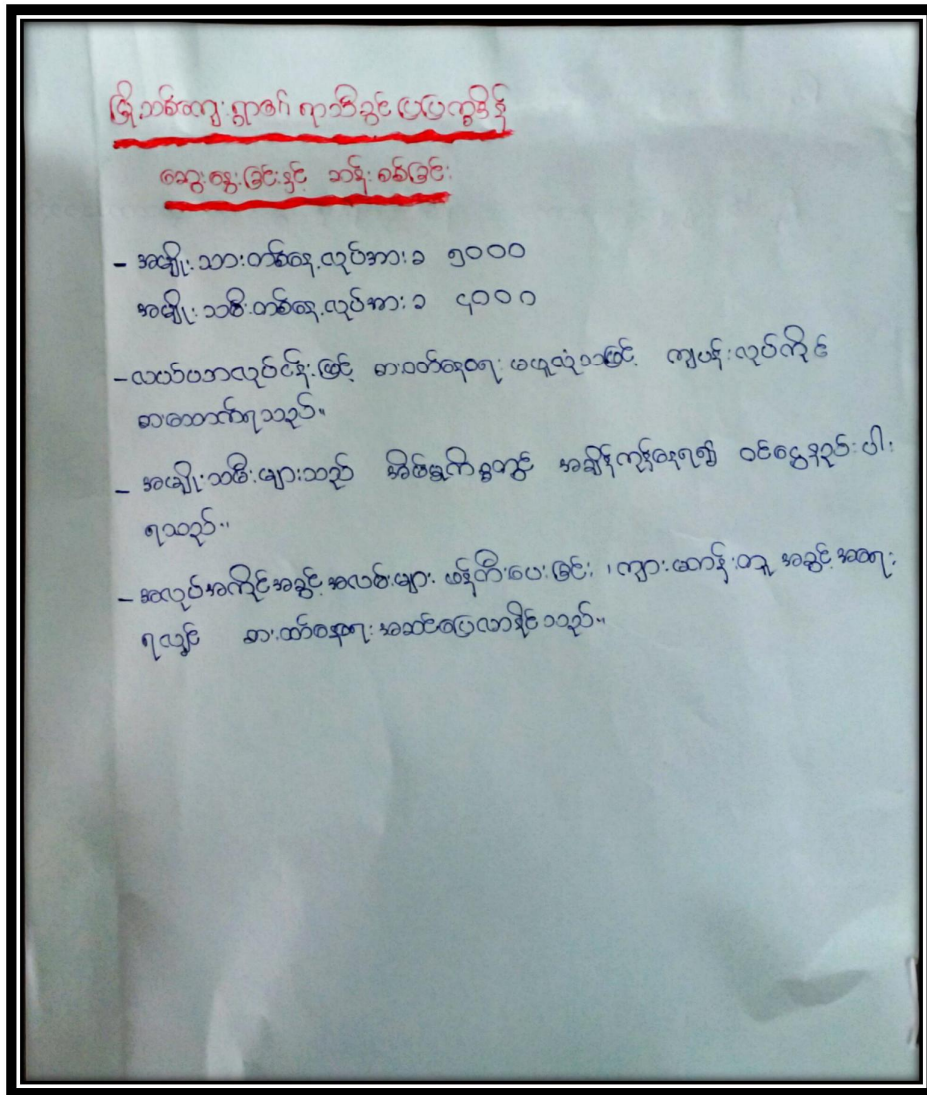 မြို့သစ်ကျေးရွာ၏ ရာသီခွင်ပြပြက္ခဒိန်
ဆွေးနွေးခြင်းနှင့် ဆန်းစစ်ခြင်း
- အမျိုးသားတစ်နေ့လုပ်အားခ ၅၀၀၀
အမျိုးသမီးတစ်နေ့လုပ်အားခ ၄၀၀၀
- လယ်ယာလုပ်ငန်းဖြင့် စားဝတ်နေရေး မဖူလုံသဖြင့် ကျပန်းလုပ်ကိုင်
စားသောက်ရသည်။
- အမျိုးသမီးများသည် အိမ်မှုကိစ္စတွင် အချိန်ကုန်နေရ၍ ဝင်ငွေနည်းပါး
ရသည်။
- အလုပ်အကိုင်အခွင့်အလမ်းများ ဖန်တီးပေးခြင်း ၊ ကျားမတန်းတူ အခွင့်အရေး
ရလျှင် စားဝတ်နေရေး အဆင်ပြေလာနိုင်သည်။